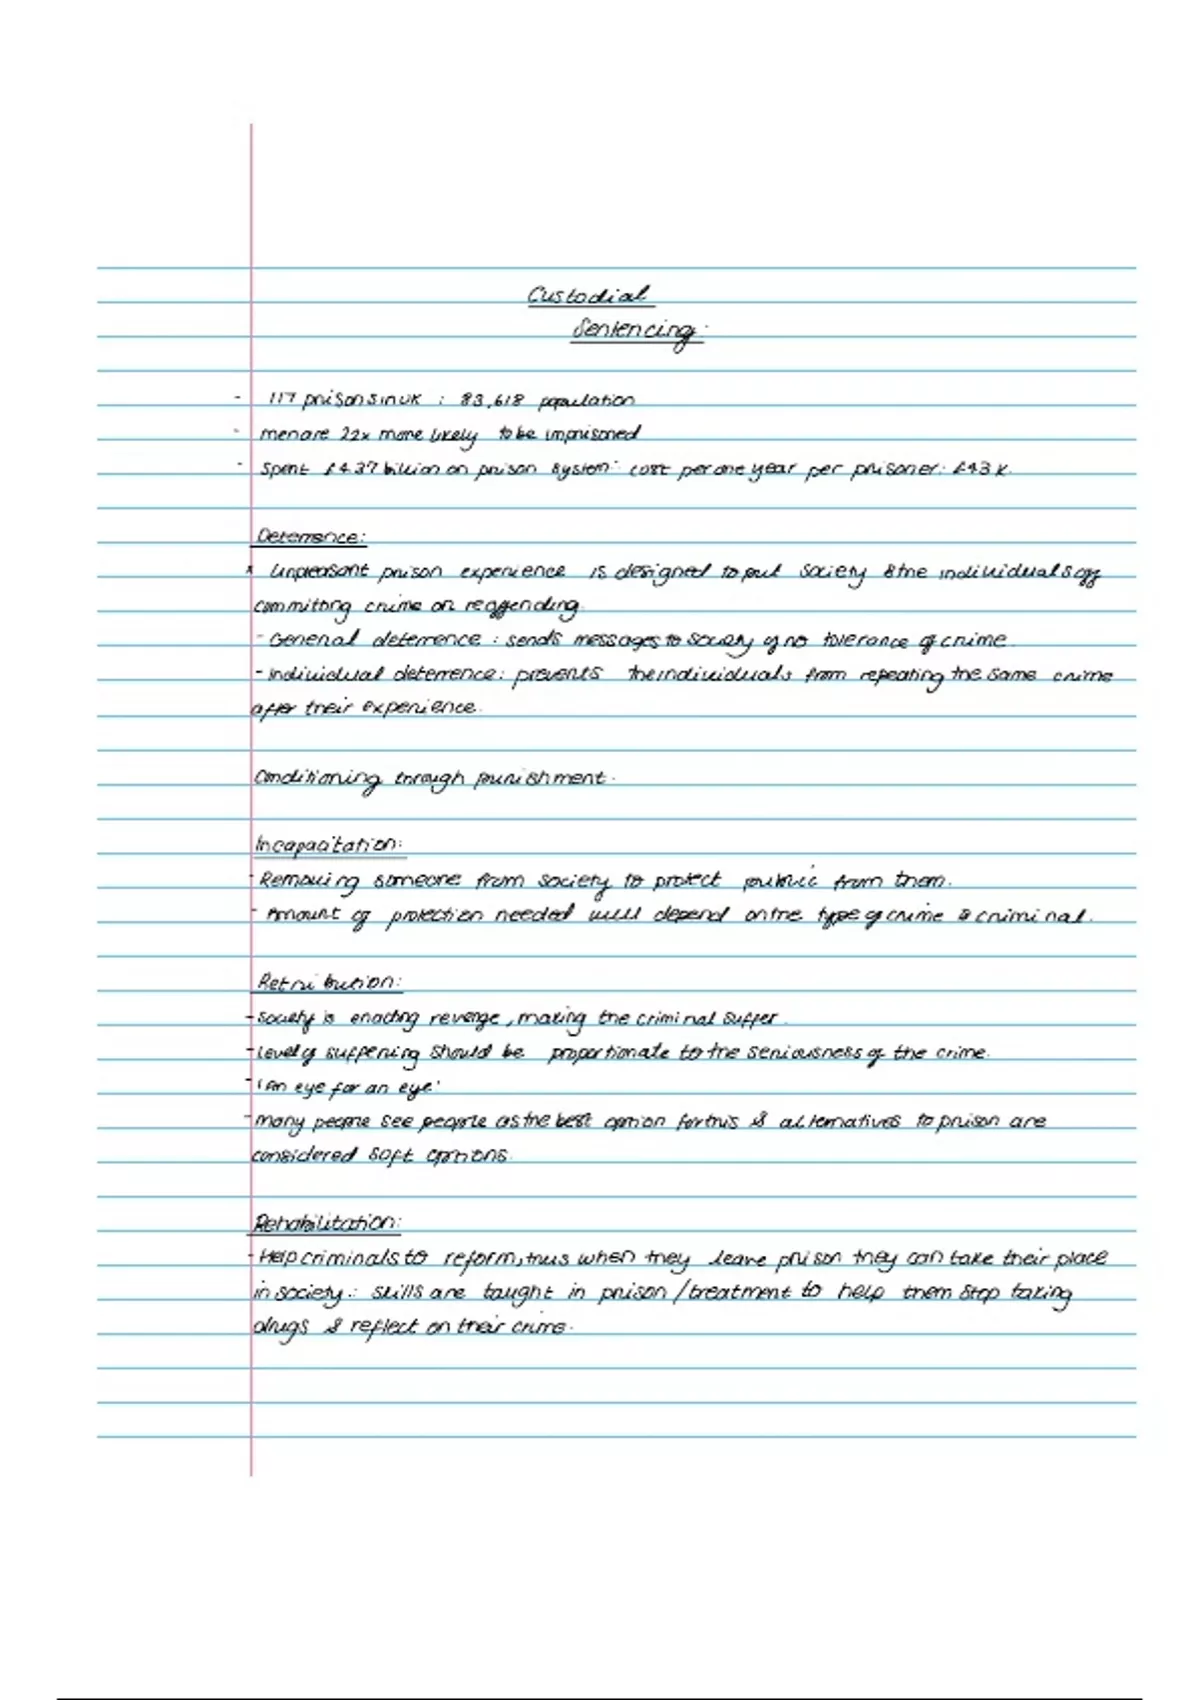 Custodial
Sentencing:
- 117 prisons in UK : 83,618 population
- men are 22x more likely to be imprisoned
- Spent £4.37 billion on prison system: cost per one year per prisoner: £43K.
Deterrence:
* Unpleasant prison experience is designed to put society & the individuals off
committing crime or reoffending.
- General deterrence : sends messages to society of no tolerance of crime.
- Individual deterrence: prevents the individuals from repeating the same crime
after their experience.
Conditioning through punishment.
Incapacitation:
- Removing someone from society to protect public from them.
- Amount of protection needed will depend on the type of crime & criminal.
Retribution:
- Society is enacting revenge, making the criminal suffer.
- Level of suffering should be proportionate to the seriousness of the crime.
- 'An eye for an eye'
- Many people see people as the best option for this & alternatives to prison are
considered soft options.
Rehabilitation:
- Help criminals to reform, thus when they leave prison they can take their place
in society.: skills are taught in prison / treatment to help them stop taking
drugs & reflect on their crime.